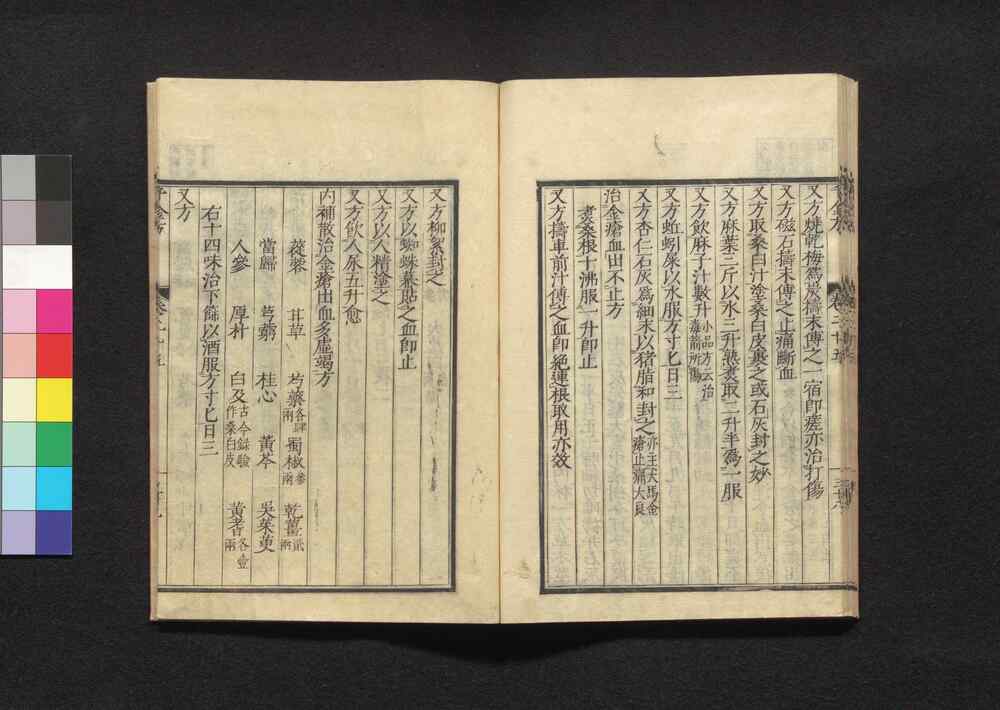 又方燒乾梅爲炭擣末傅之一宿即瘥亦治打傷
又方磁石擣末傅之止痛斷血
又方取桑白汁塗桑白皮裹之或石灰封之妙
又方麻葉三斤以水三升熟煑取二升半爲一服
又方飲麻子汁數升小品方云治毒箭所傷
又方蚯蚓屎以水服方寸匕日三
又方杏仁石灰爲細末以猪脂和封之亦主犬馬金瘡止痛大良
治金瘡血出不止方
煑桑根十沸服一升即止
又方擣車前汁傅之血即絶連根取用亦效
又方柳絮封之
又方以蜘蛛幕貼之血即止
又方以人精塗之
又方飲人尿五升愈
内補散治金瘡出血多虛竭方
蓯蓉 甘草 芍藥各肆兩 蜀椒叁兩 乾薑貳兩
當歸 芎藭 桂心 黃芩 吳茱萸
人參 厚朴 白及古今録驗作桑白皮 黃耆各壹兩
右十四味治下篩以酒服方寸匕日三
又方